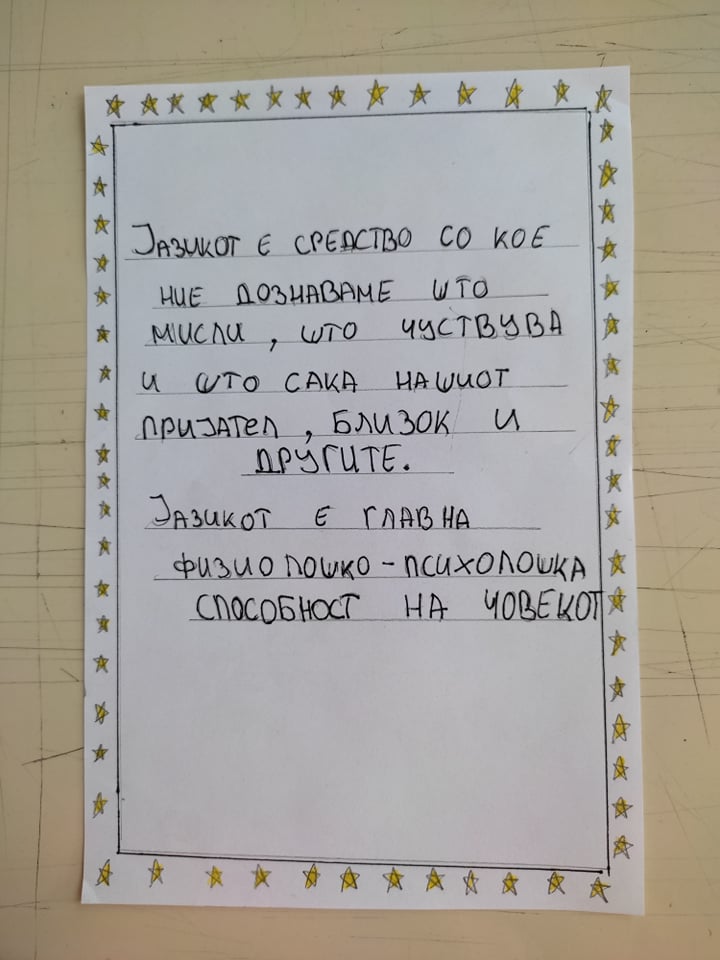 Јазикот е средство со кое
ние дознаваме што
мисли, што чуствува
и што сака нашиот
пријател, близок и
другите.
Јазикот е главна
физиолошко-психолошка
способност на човекот